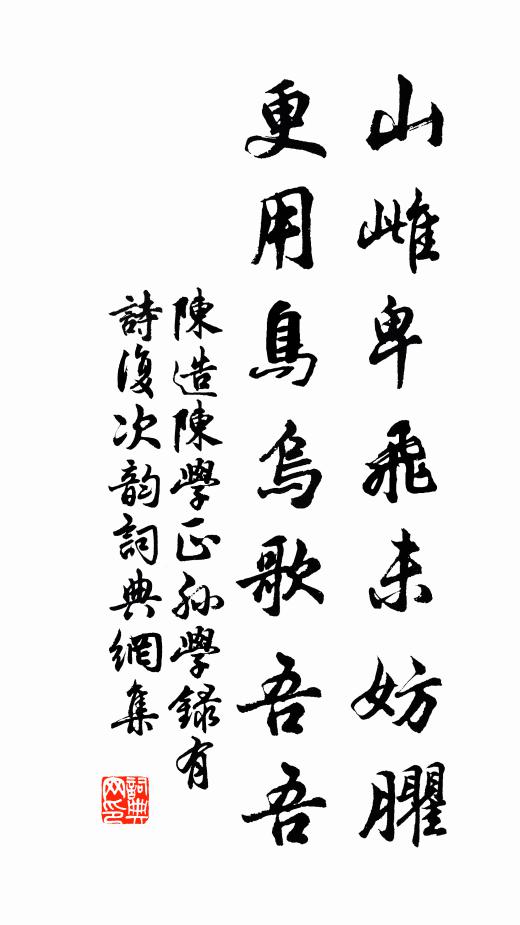 山雌卑飛未妨臞
更用鳥烏歌吾吾
陳造陳學正孫學錄有
詩復次韵詞典網集
詞典
网印